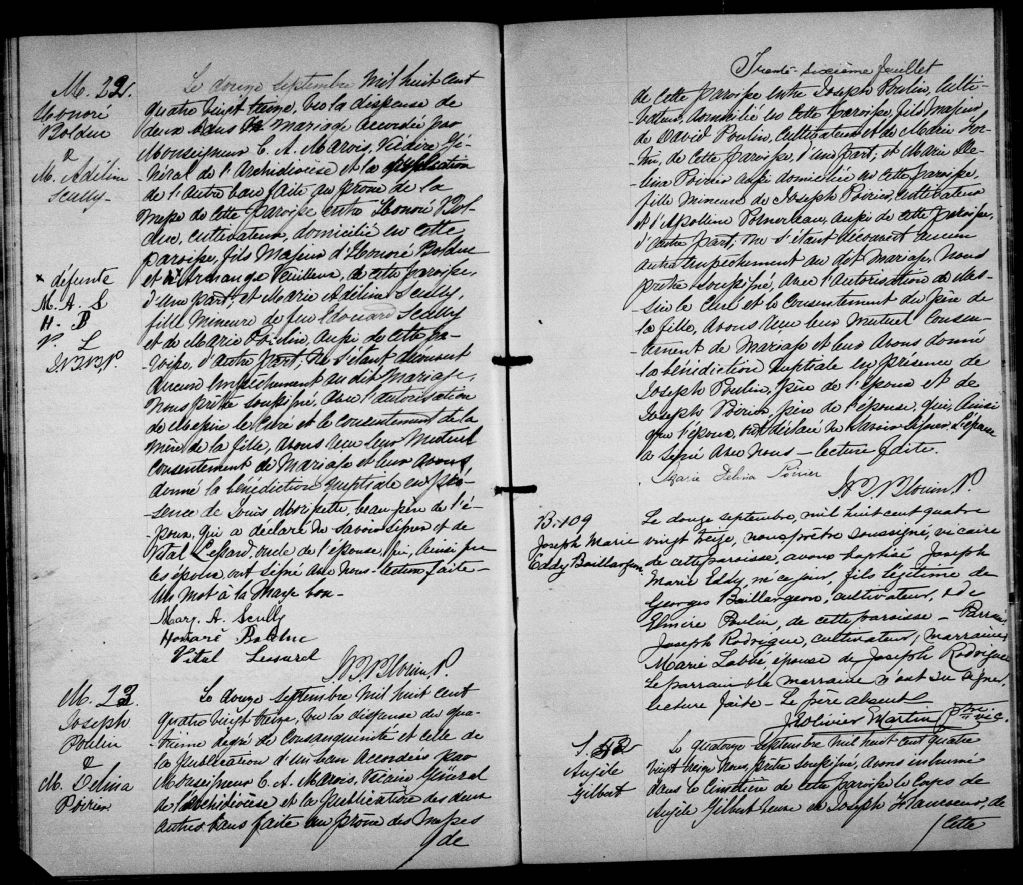 M. 22.
Honoré
Bolduc
&
M. Adéline
Scully
Le douze septembre mil huit cent
quatre vingt treize, vu la dispense de
deux bans de mariage accordée par
Monseigneur C. A. Marois, Vicaire Gé-
néral de l'Archidiocèse et la publication
de l'autre ban faite au prône de la
messe de cette paroisse entre Honoré Bol-
duc, cultivateur, domicilié en cette
paroisse, fils majeur d'Honoré Bolduc
et x Archange Veilleux, de cette paroisse,
d'une part; et Marie Adéline Scully,
fille mineure de feu Edouard Scully
et de Marie Poulin, aussi de cette pa-
roisse, d'autre part; ne s'étant découvert
aucun empêchement au dit mariage,
Nous prêtre soussigné, avec l'autorisation
de Messire le Curé et le consentement de la
mère de la fille, avons reçu leur mutuel
consentement de mariage et leur avons
donné la bénédiction nuptiale en pré-
sence de Louis, beau-père de l'é-
poux, qui a déclaré ne savoir signer et de
Vital Lessard, oncle de l'épouse, qui, ainsi que
les époux, ont signé avec nous. Lecture faite -
Un mot à la marge bon -
x défunte
M. A. S
H. B
V. L
Mary A. Scully
Honaré Bolduc
Vital Lessard
M. 23.
Joseph
Poulin
&
M. Delina
Poirier
Le douze septembre mil huit cent
quatre vingt treize, vu la dispense du qua-
trième degré de consanguinité et celle de
la publication d'un ban accordées par
Monseigneur C. A. Marois, Vicaire Général
de l'Archidiocèse et la publication des deux
autres bans faite au prône des messes
/ de
Trente-sixième feuillet
de cette paroisse entre Joseph Poulin, culti-
vateur, domicilié en cette paroisse, fils majeur
de David Poulin, cultivateur et de Marie
de cette paroisse, d'une part; et Marie De-
lina Poirier aussi domiciliée en cette paroisse,
fille mineure de Joseph Poirier, cultivateur
et d'Apolline Pomerleau, aussi de cette paroisse,
d'autre part; ne s'étant découvert aucun
autre empêchement au dit mariage, Nous
prêtre soussigné, avec l'autorisation de Mes-
sire le Curé et le consentement du père de
la fille, avons reçu leur mutuel consen-
tement de mariage et leur avons donné
la bénédiction nuptiale en présence de
Joseph Poulin, père de l'époux et de
Joseph Poirier, père de l'épouse, qui, ainsi
que l'époux, ont déclaré ne savoir signer. L'épouse
a signé avec nous - lecture faite.
Marie Delina Poirier
B. 109
Joseph Marie
Eddy Baillargeon
Le douze septembre, mil huit cent quatre
vingt treize, nous prêtre soussigné, vicaire
de cette paroisse, avons baptisé Joseph
Marie Eddy, né ce jour, fils légitime de
Georges Baillargeon, cultivateur, & de
Elmire Poulin, de cette paroisse - Parrain
Joseph Rodrigue, cultivateur; marraine
Marie Labbé, épouse de Joseph Rodrigue
Le parrain & la marraine n'ont su signer.
Lecture faite - Le père absent
J. Olivier Martin ptre.
vic.
S. 42
Angèle
Gilbert
Le quatorze septembre mil huit cent quatre
vingt treize Nous, prêtre soussigné, avons inhumé
dans le cimetière de cette paroisse le corps de
Angèle Gilbert veuve de Joseph, de
/ cette